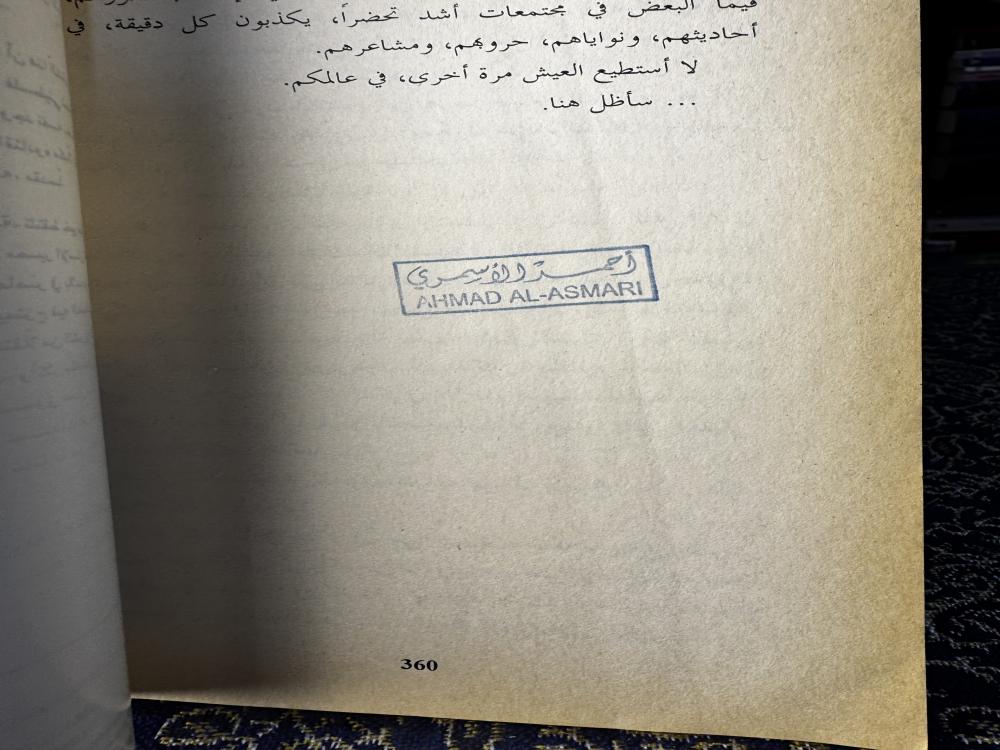 فيما البعض في مجتمعات أشد تحضراً، يكذبون كل دقيقة، في
أحاديثهم، ونواياهم، حروبهم، ومشاعرهم.
لا أستطيع العيش مرة أخرى، في عالمكم.
... سأظل هنا.
أحمد الأسمري
AHMAD AL-ASMARI
360